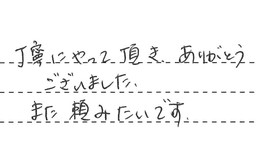 丁寧にやって頂き、ありがとう
ございました。
また頼みたいです。